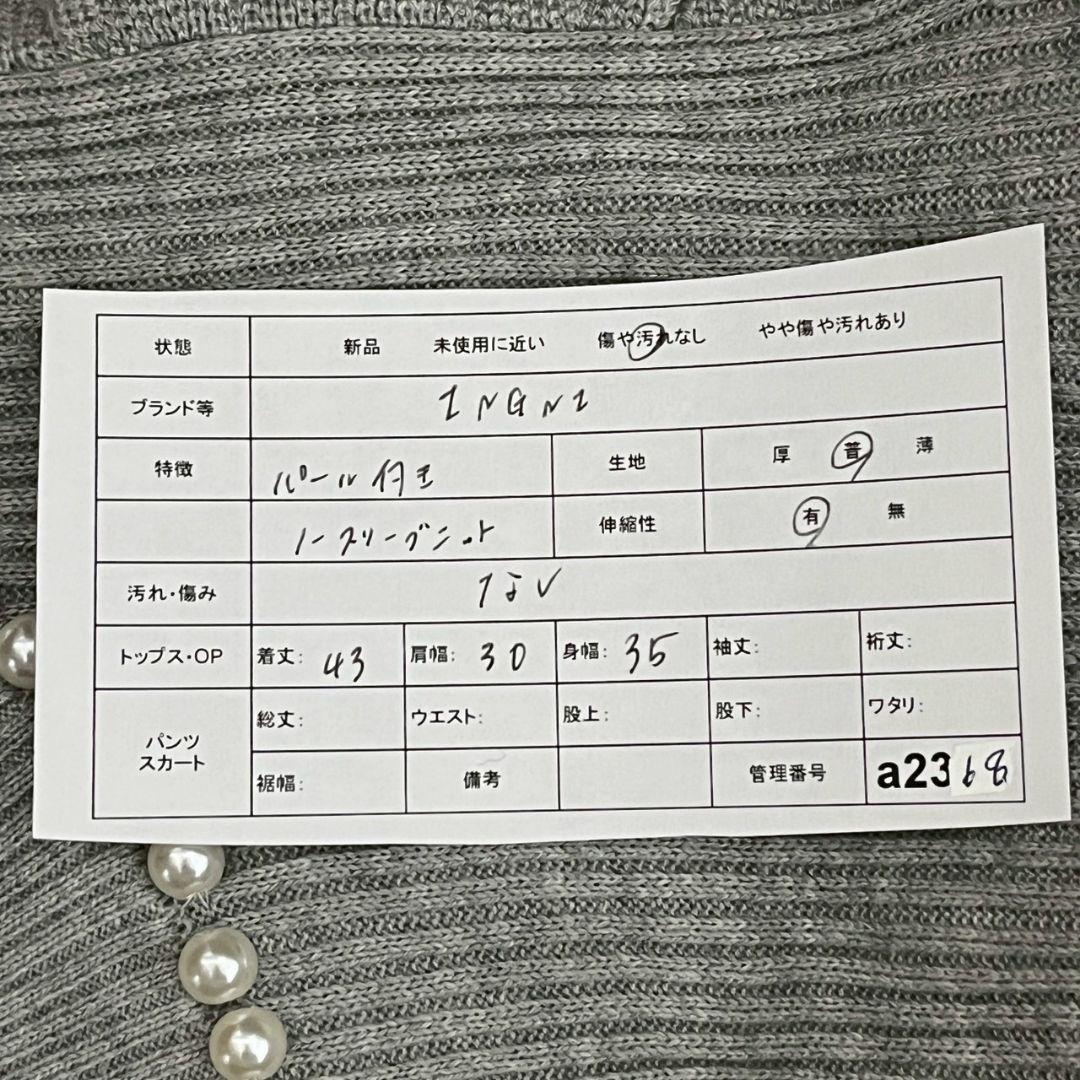 状態 新品 未使用に近い 傷や汚れなし やや傷や汚れあり
ブランド等 INGNI
特徴 パール付き 生地 厚 普 薄
ノースリーブニット 伸縮性 有 無
汚れ・傷み なし
トップス・OP 着丈: 43 肩幅: 30 身幅: 35 袖丈: 裄丈:
パンツ スカート 総丈: ウエスト: 股上: 股下: ワタリ:
裾幅: 備考 管理番号 a2368